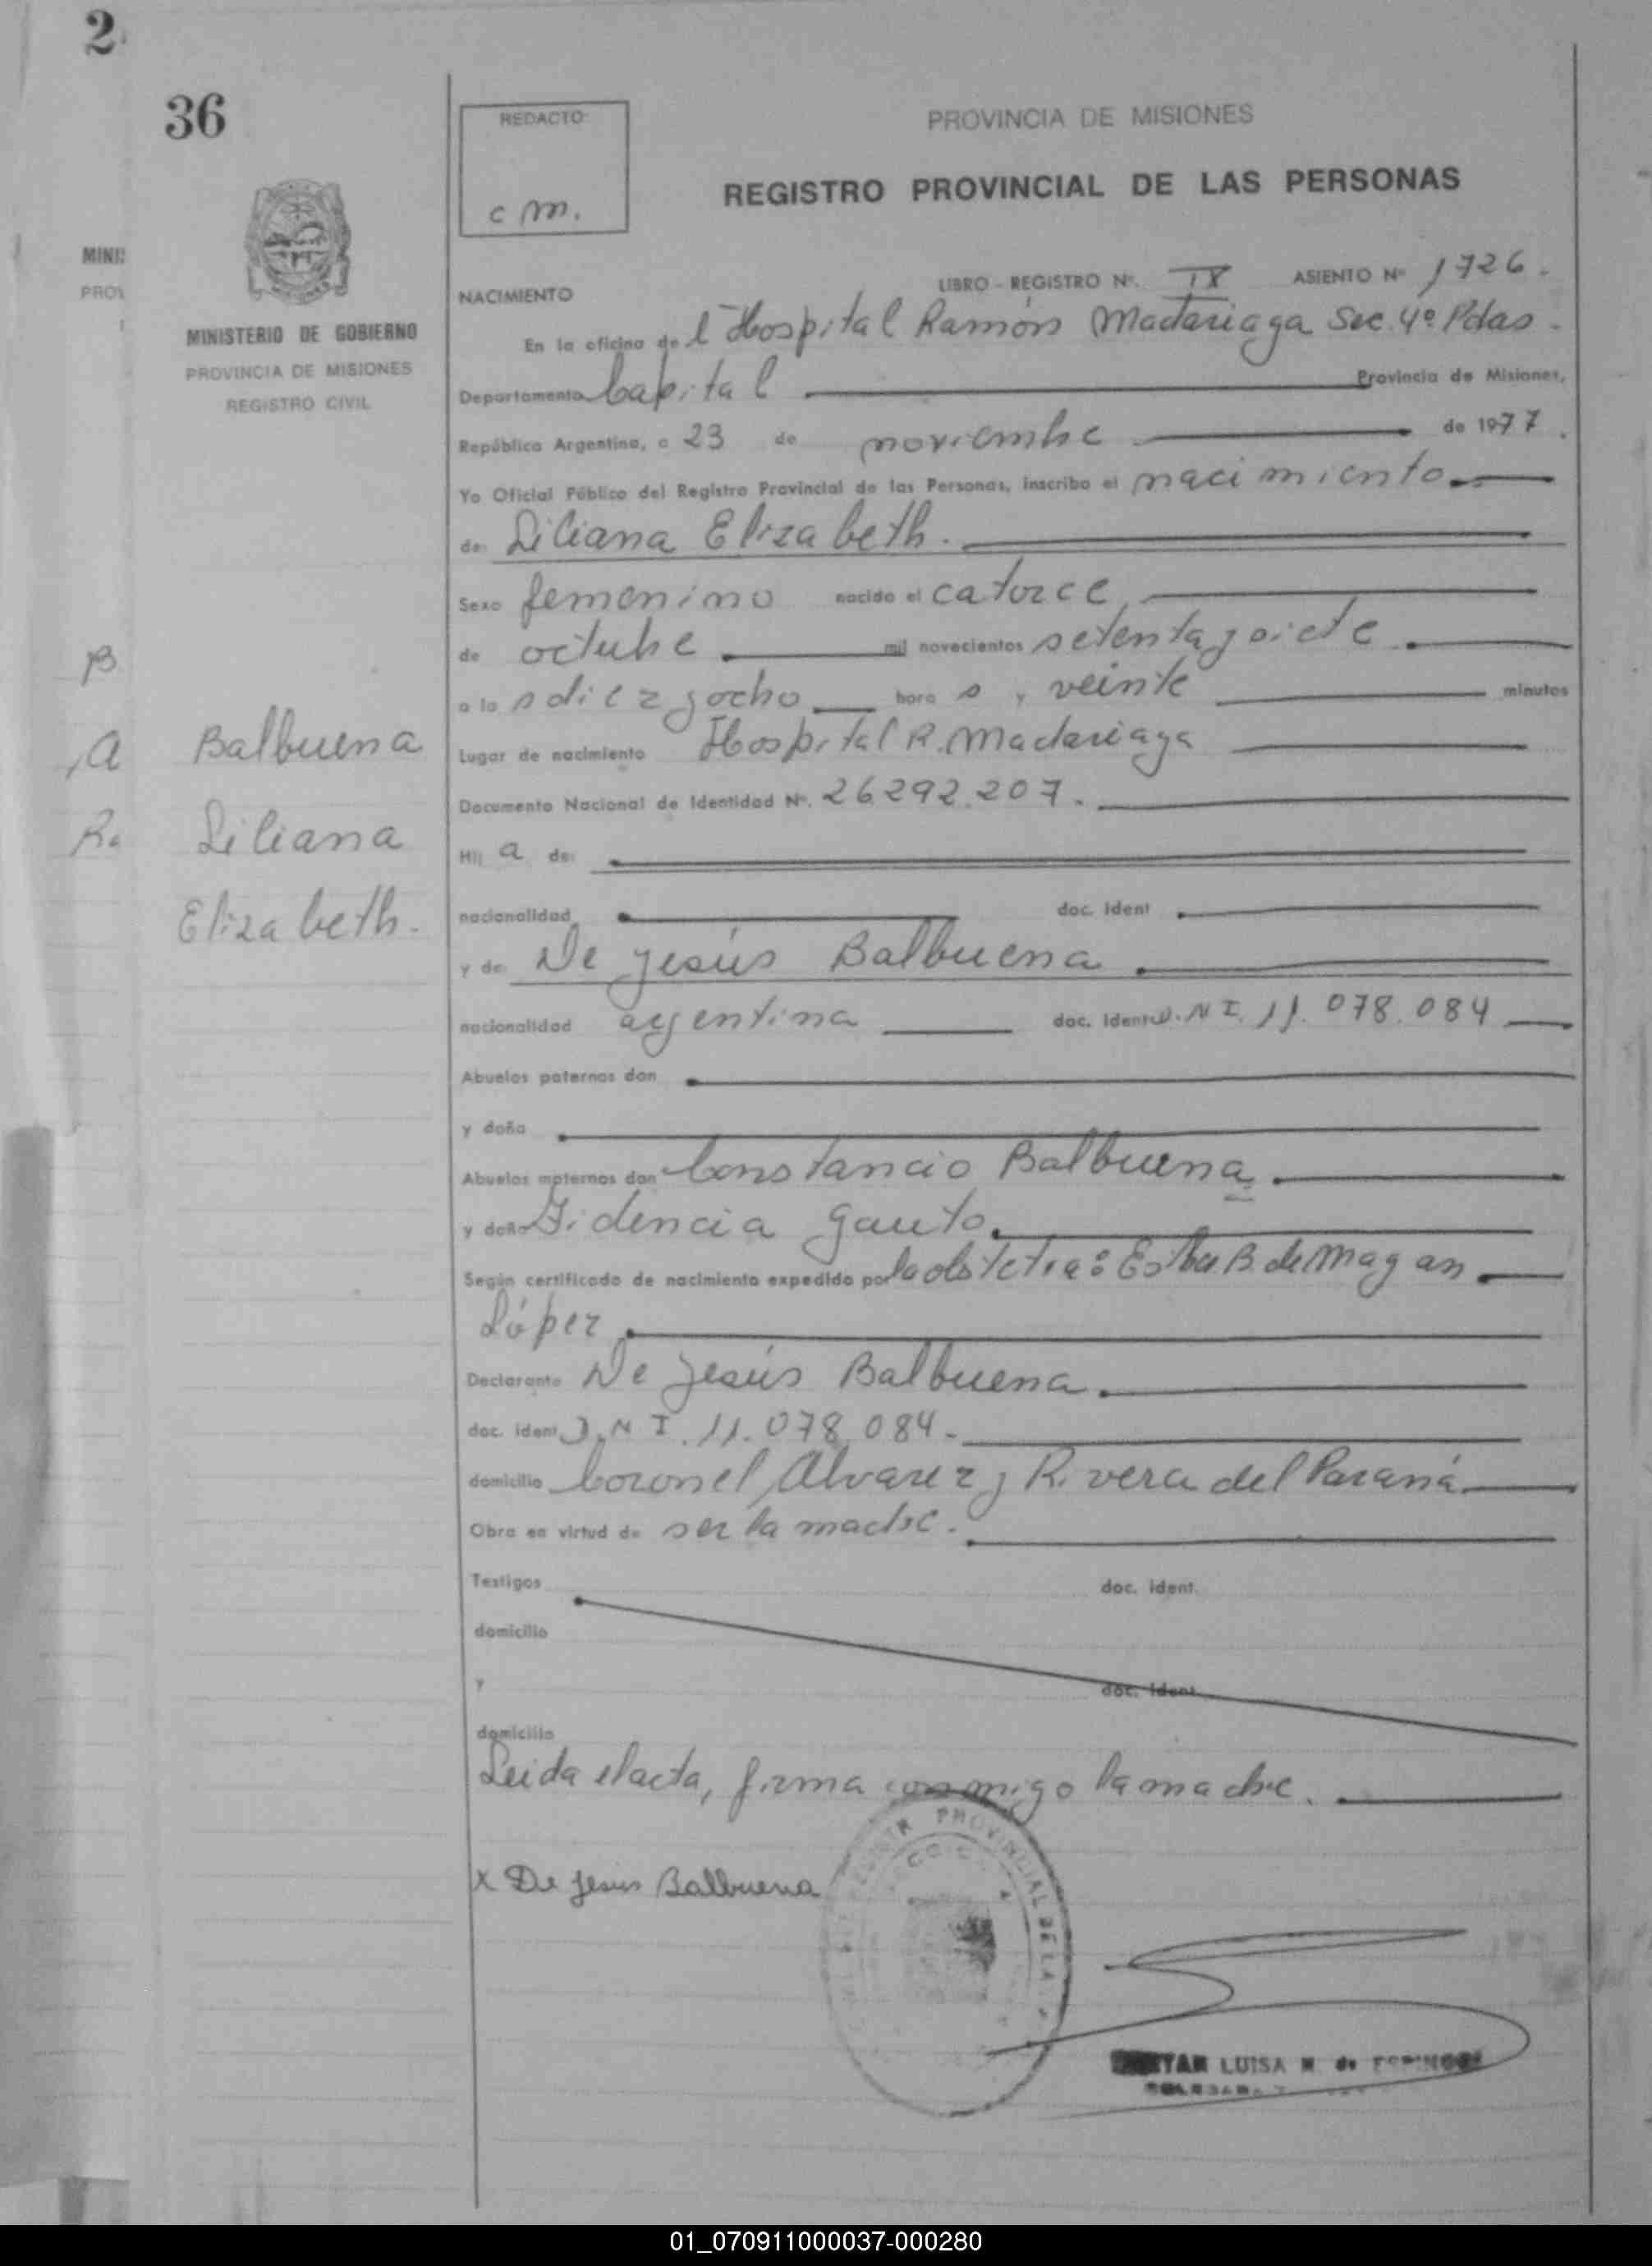 2
36
REDACTO:
c m.
PROVINCIA DE MISIONES
REGISTRO PROVINCIAL DE LAS PERSONAS
MINIS
PROV
MINISTERIO DE GOBIERNO
PROVINCIA DE MISIONES
REGISTRO CIVIL
LIBRO - REGISTRO Nº. IX ASIENTO Nº 1726.
NACIMIENTO
En la oficina del Hospital Ramón Madariaga Sec. 4º Pdas.
Departamento Capital Provincia de Misiones,
República Argentina, a 23 de noviembre de 1977.
Yo Oficial Público del Registro Provincial de las Personas, inscribo el nacimiento
de: Liliana Elizabeth.
Sexo femenino nacido el catorce
de octubre mil novecientos setenta y siete
a las diez y ocho horas y veinte minutos
Lugar de nacimiento Hospital R. Madariaga
Documento Nacional de Identidad Nº. 26.292.207.
Balbuena
Liliana
Elizabeth.
Hija de:
nacionalidad doc. ident
y de: De Jesús Balbuena
nacionalidad argentina doc. ident D.N.I. 11.078.084
Abuelos paternos don
y doña
Abuelos maternos don Constancio Balbuena
y doña Fidencia Gauto.
Según certificado de nacimiento expedido por la obstetra: Esther B. de Magan
López
Declarante De Jesús Balbuena
doc. ident D.N.I. 11.078.084.
domicilio Coronel Alvarez y Rivera del Paraná
Obra en virtud de ser la madre.
Testigos doc. ident.
domicilio
y doc. ident.
domicilio
Leida el acta, firma conmigo la madre.
x De Jesus Balbuena
PROVINCIAL DE LA
LUISA M. de
01_070911000037-000280